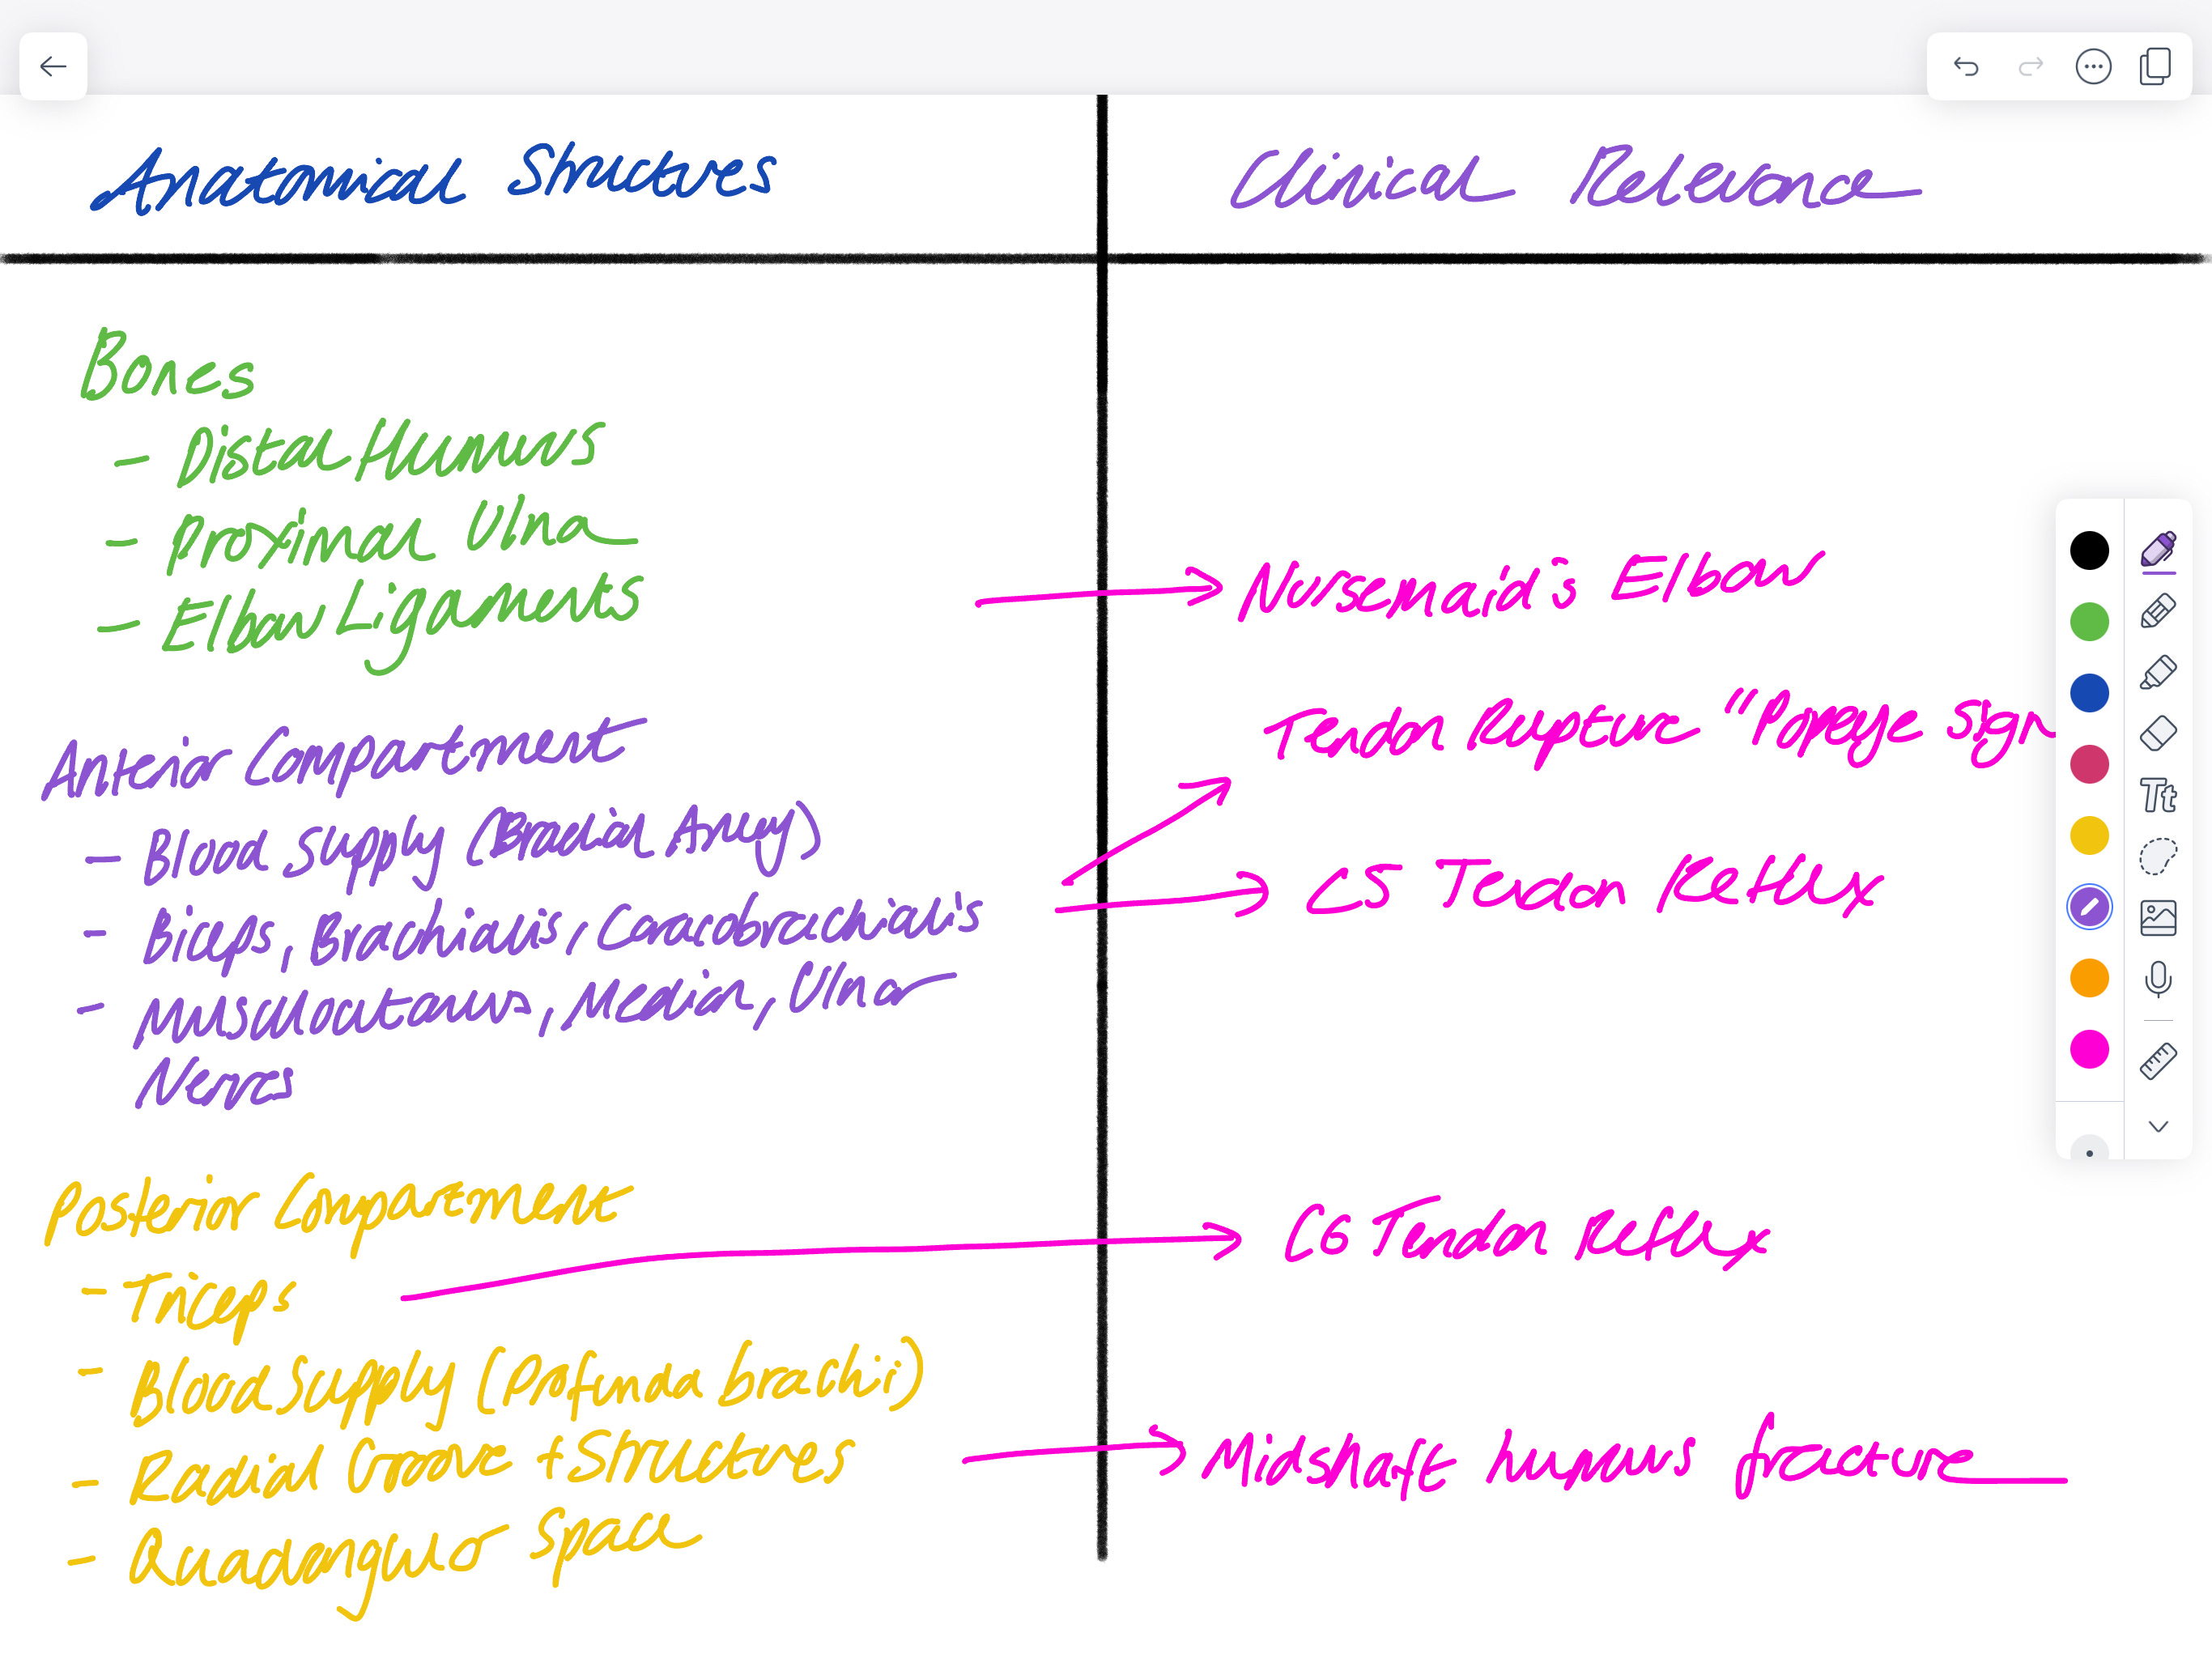 Anatomical Structures
Clinical Relevance
Bones
- Distal Humerus
- Proximal Ulna
- Elbow Ligaments
Nursemaid's Elbow
Anterior Compartment
- Blood Supply (Brachial Artery)
- Biceps, Brachialis, Coracobrachialis
- Musculocutaneous, Median, Ulnar
Nerves
Tendon Rupture "Popeye Sign
C5 Tendon Reflex
Posterior Compartment
- Triceps
- Blood Supply (Profunda brachii)
- Radial Groove + Structures
- Quadangular Space
C6 Tendon Reflex
Midshaft humerus fracture
Tt